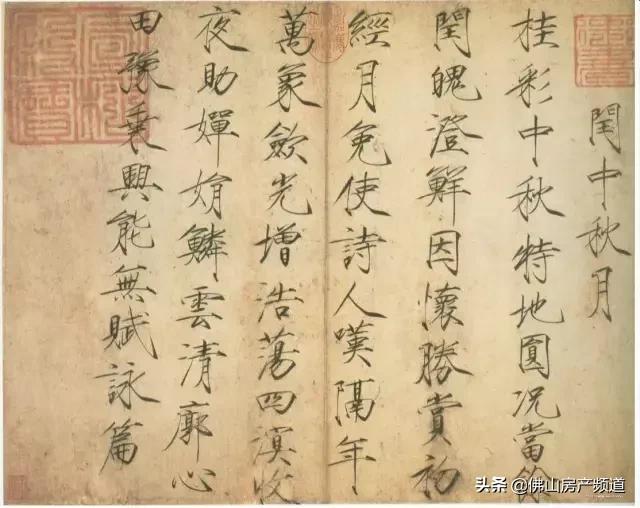 閏中秋月
桂彩中秋特地圓況當餘
閏魄澄鮮因懷勝賞初
經月免使詩人嘆隔年
萬象斂光增浩蕩四溟收
夜助嬋娟鱗雲清廓心
田豫乘興能無賦詠篇
头条 @佛山房产频道